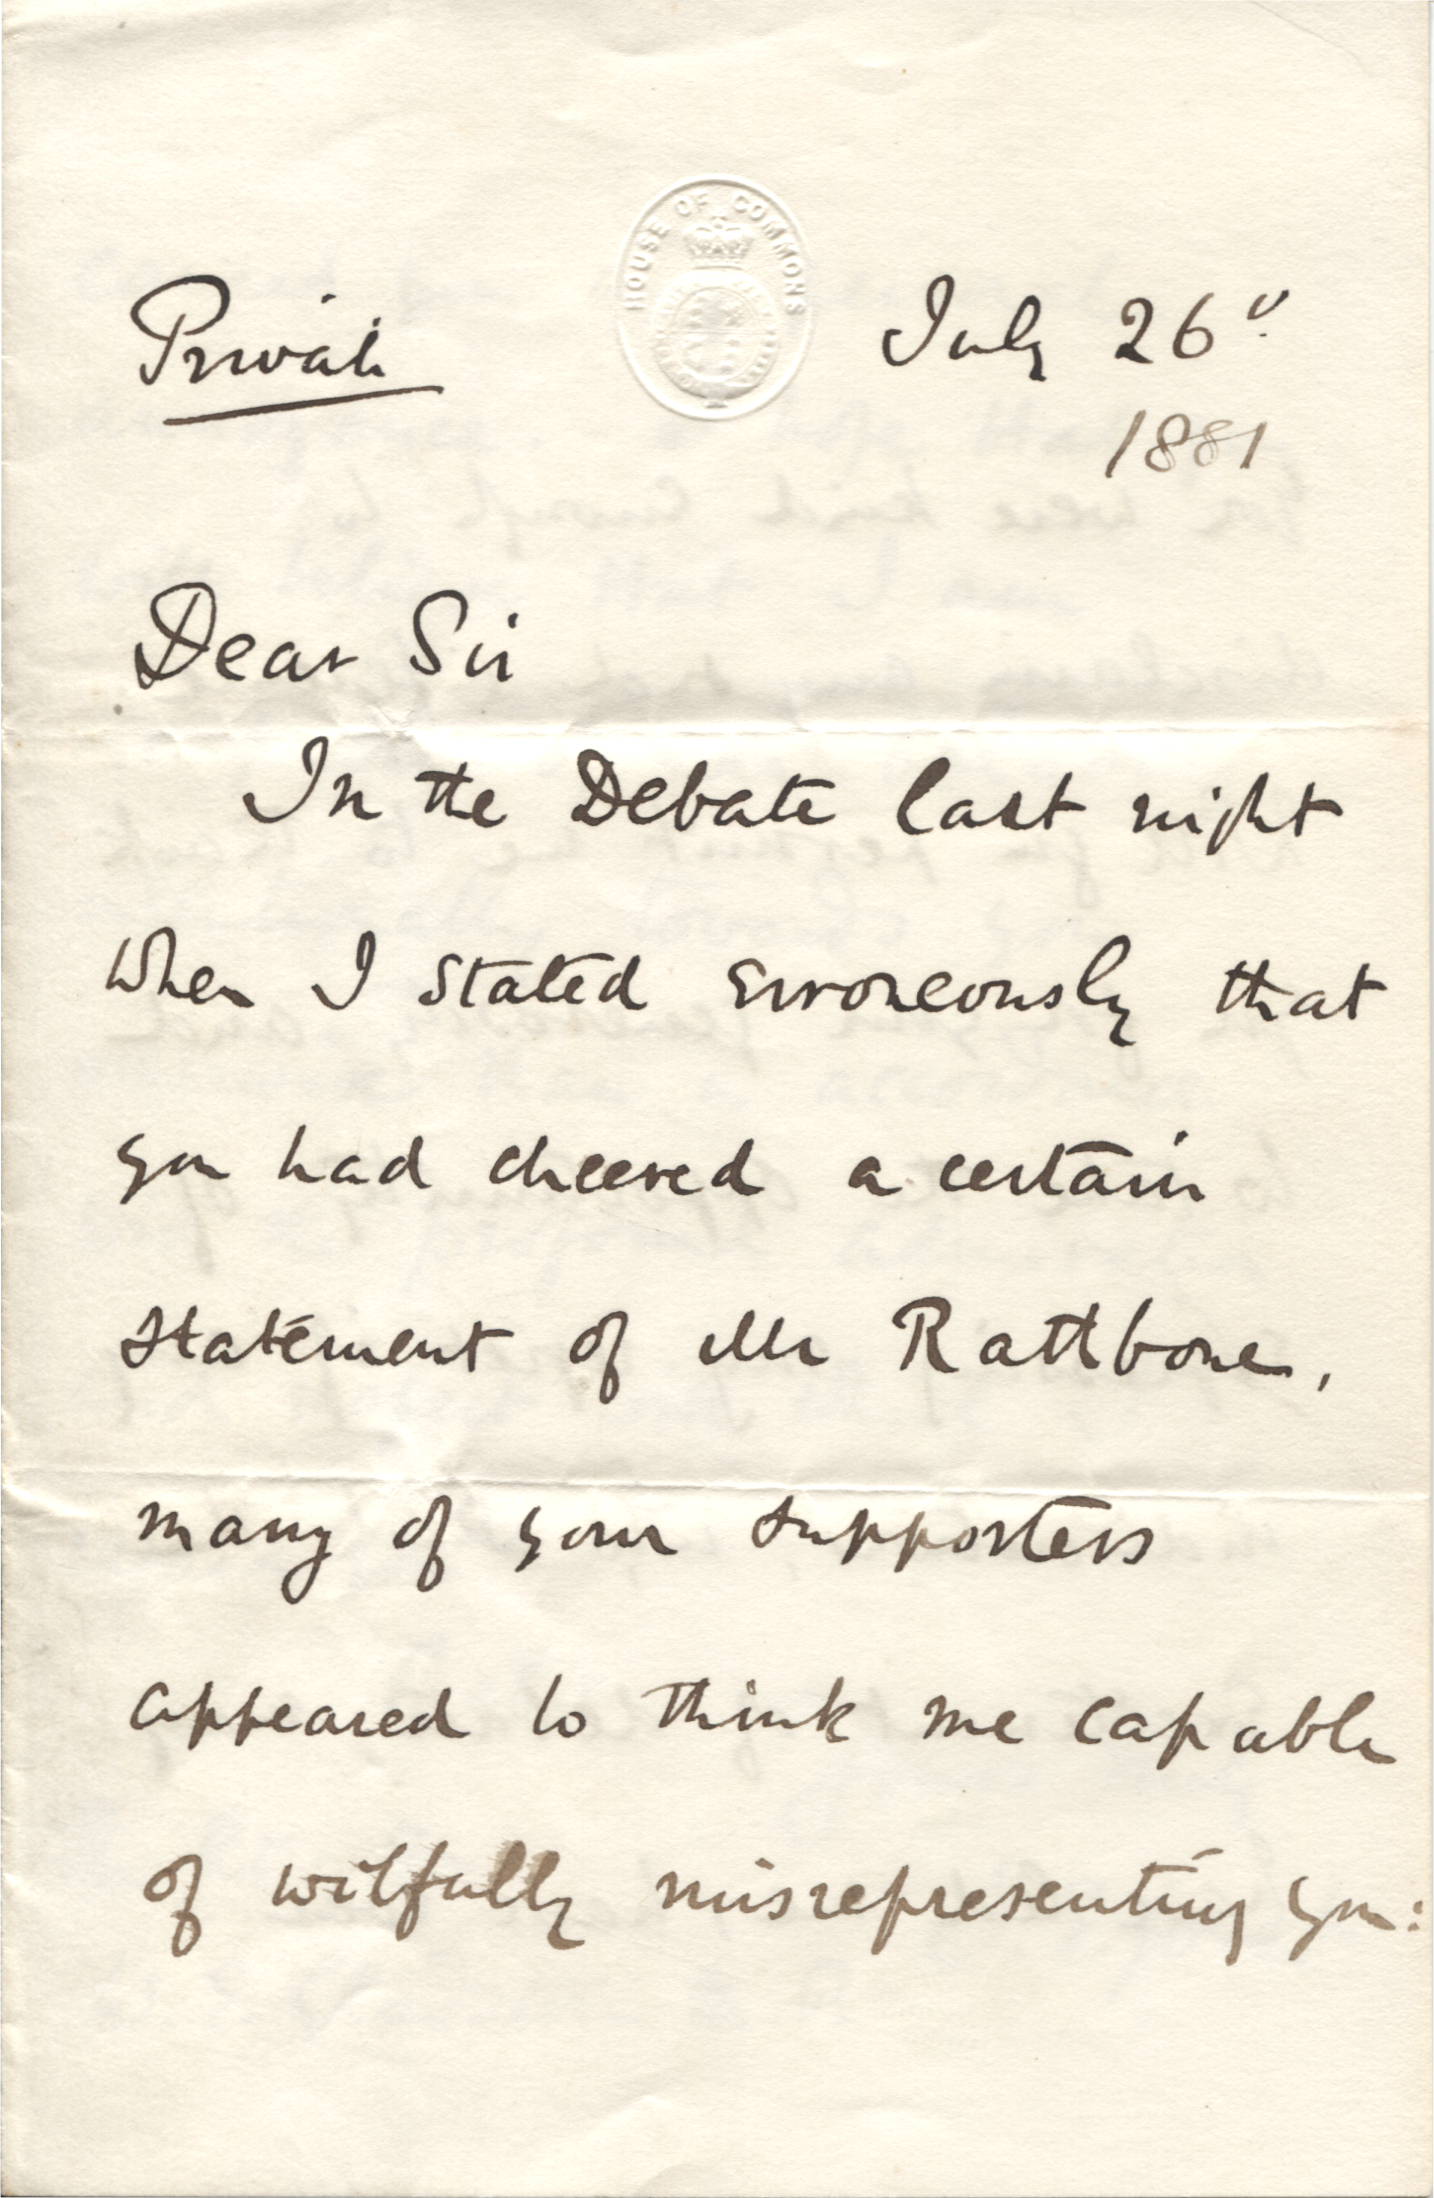 HOUSE OF COMMONS
Private
July 26
1881
Dear Sir
In the Debate last night
when I stated erroneously that
you had cheered a certain
statement of Mr Rathbone,
many of your supporters
appeared to think me capable
of wilfully misrepresenting you: